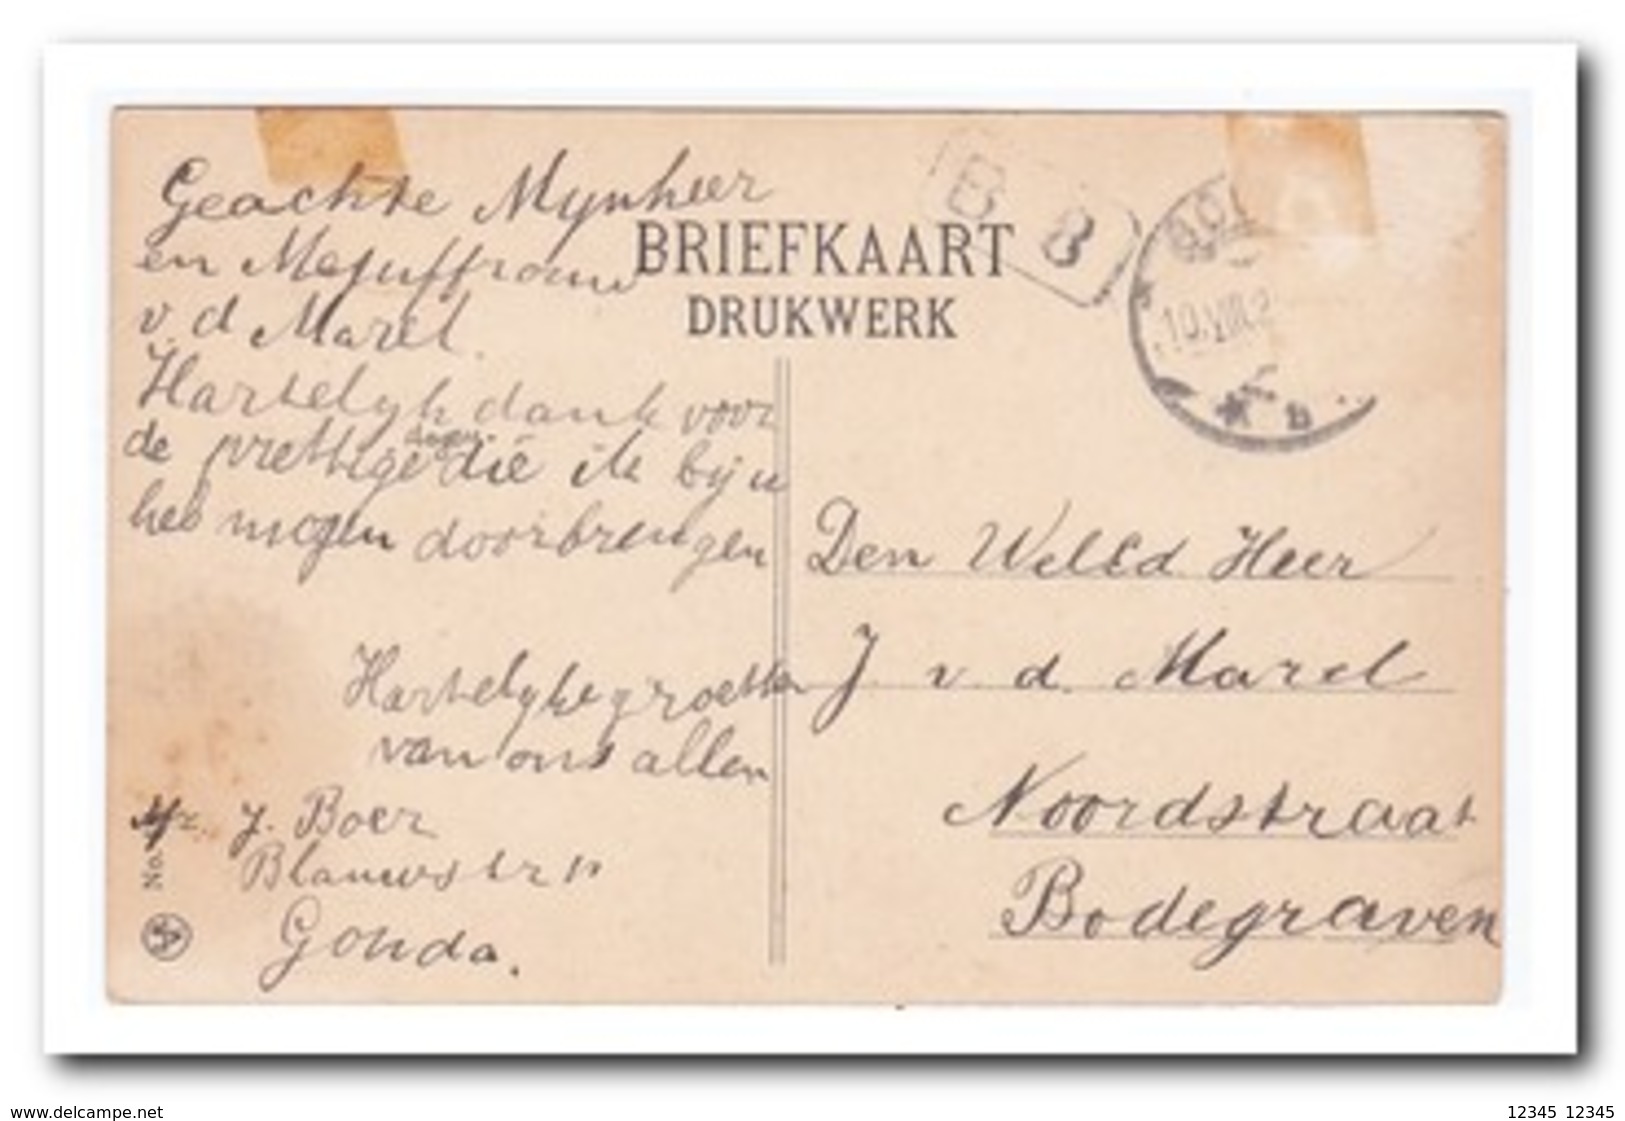 Geachte Mynheer
en Mejuffrouw
v. d Marel.
Hartelyk dank voor
de prettige dagen die ik bij u
heb mogen doorbrengen
Hartelyke groeten
van ons allen
Afz. J. Boer
Blauwstr 11
Gouda.
No.
BRIEFKAART
DRUKWERK
B B
10.VIII.
B
Den WelEd Heer
J v. d. Marel
Noordstraat
Bodegraven
www.delcampe.net
12345 12345